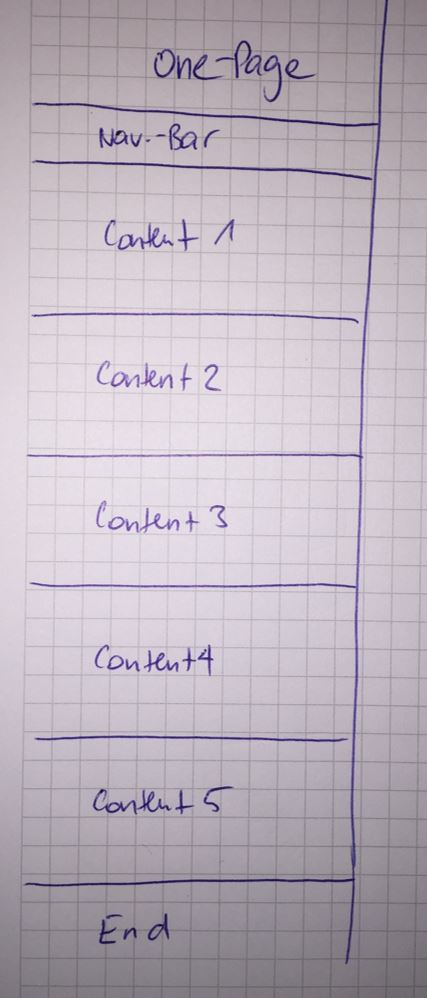 One-Page
Nav.-Bar
Content 1
Content 2
Content 3
Content 4
Content 5
End